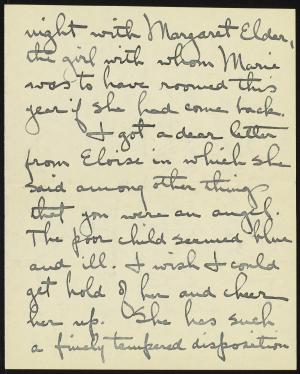 night with Margaret Elder,
the girl with whom Marie
was to have roomed this
year if she had come back.
I got a dear letter
from Eloise in which she
said among other things
that you were an angel.
The poor child seemed blue
and ill. I wish I could
get hold of her and cheer
her up. She has such
a finely tempered disposition